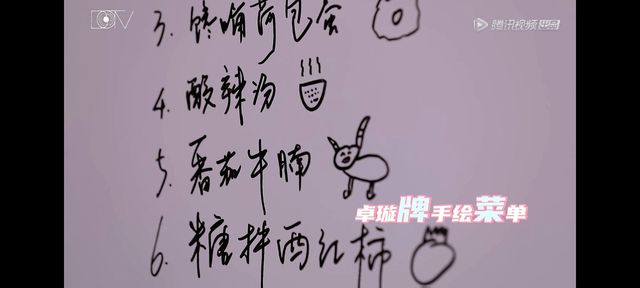 DOV
腾讯视频 出品
3. 馋嘴荷包蛋
4. 酸辣汤
5. 番茄牛腩
卓璇牌手绘菜单
6. 糖拌西红柿